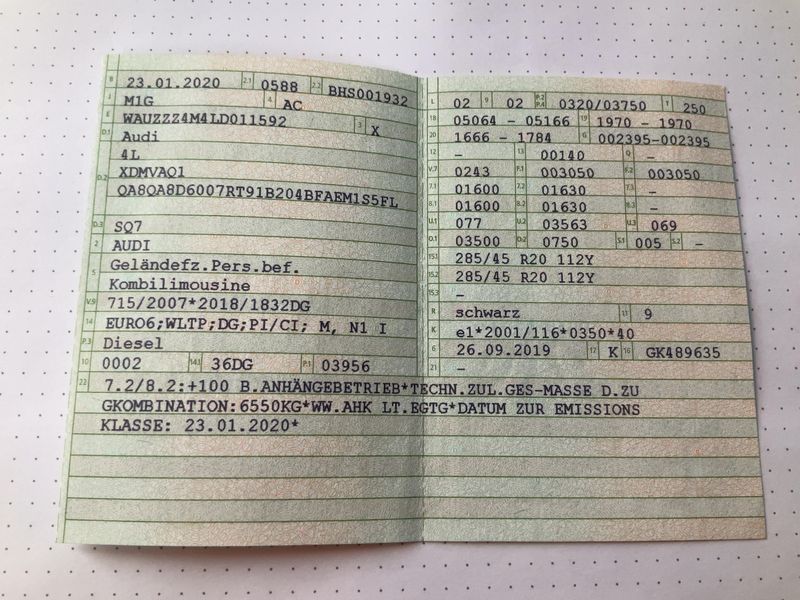 B 23.01.2020 2.1 0588 2.2 BHS001932
J M1G 4 AC
E WAUZZZ4M4LD011592 3 X
D.1 Audi
D.2 4L
XDMVAQ1
QA8QA8D6007RT91B204BFAEM1S5FL
D.3 SQ7
2 AUDI
5 Geländefz.Pers.bef.
Kombilimousine
V.9 715/2007*2018/1832DG
14 EURO6;WLTP;DG;PI/CI; M, N1 I
P.3 Diesel
10 0002 14.1 36DG P.1 03956
L 02 9 02 P.2 P.4 0320/03750 T 250
18 05064 - 05166 19 1970 - 1970
20 1666 - 1784 G 002395-002395
12 - 13 00140 Q -
V.7 0243 F.1 003050 F.2 003050
7.1 01600 7.2 01630 7.3 -
8.1 01600 8.2 01630 8.3 -
U.1 077 U.2 03563 U.3 069
O.1 03500 O.2 0750 S.1 005 S.2 -
15.1 285/45 R20 112Y
15.2 285/45 R20 112Y
15.3 -
R schwarz 11 9
K e1*2001/116*0350*40
6 26.09.2019 17 K 16 GK489635
21 -
22 7.2/8.2:+100 B.ANHÄNGEBETRIEB*TECHN.ZUL.GES-MASSE D.ZU
GKOMBINATION:6550KG*WW.AHK LT.EGTG*DATUM ZUR EMISSIONS
KLASSE: 23.01.2020*